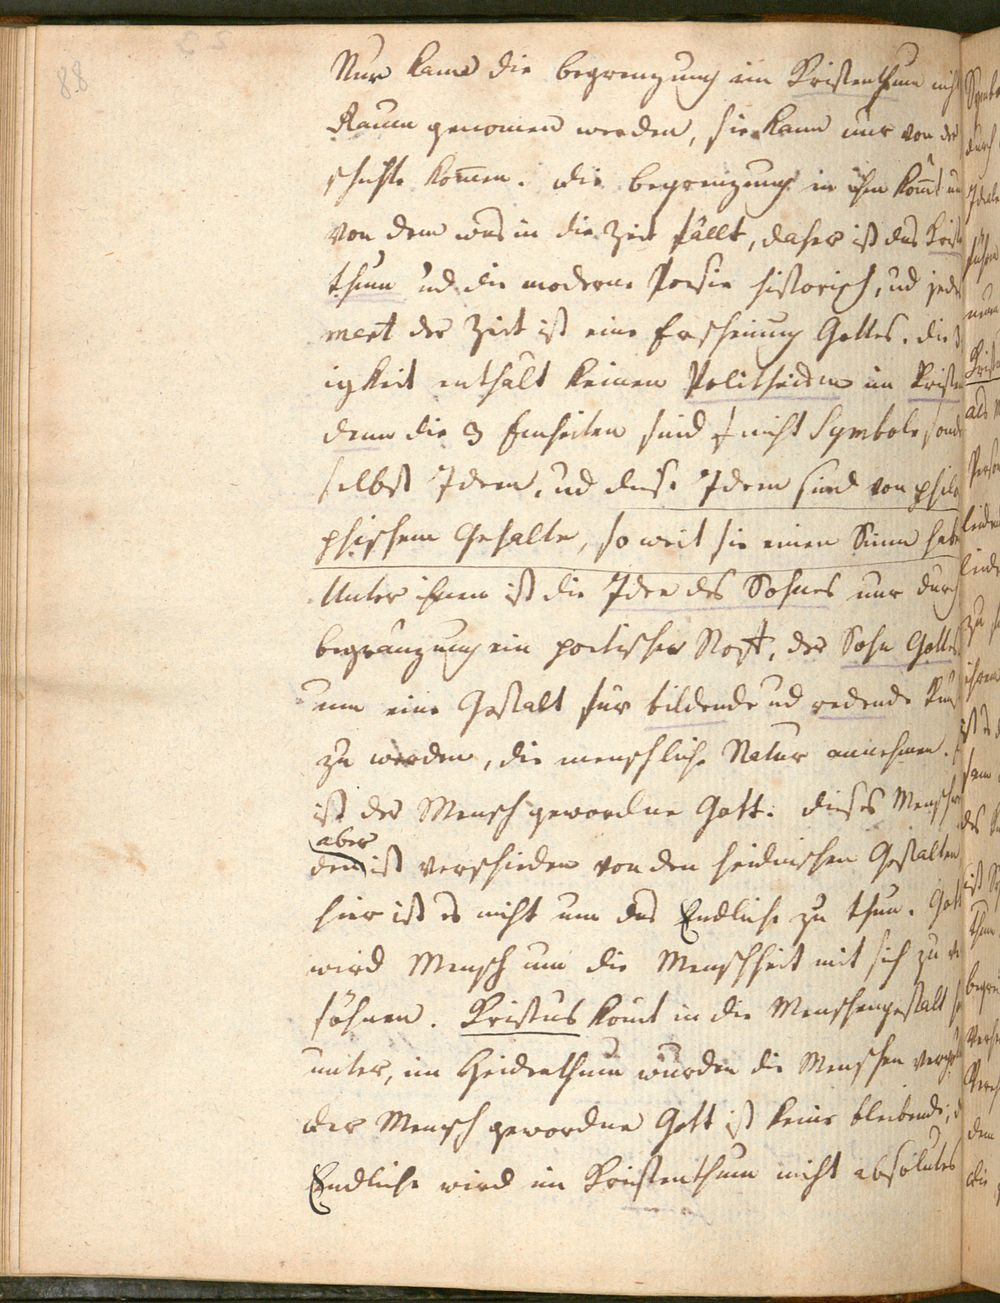 88
Nur kann die begrenzung im Kristenthum nicht
Raum genomen werden, sie kann nur von der
schichte kom̄en. die begrenzung in ihm kom̄t nur
von dem was in die Zeit fällt, daher ist das Krist
thum ud die moderne Poesie historisch, ud jedes
ment der Zeit ist eine Erscheinung Gottes. die 3
igkeit enthält keinen Politheism im Kristen
denn die 3 Einheiten sind nicht Symbole sond
selbst Ideen, ud diese Ideen sind von philo
phischem Gehalte, so weit sie einen Sinn habe
Unter ihnen ist die Idee des Sohnes nur durch
begränzung ein poetischer Stoff, der Sohn Gottes
um eine Gestalt für bildende ud redende Kunst
zu werden, die menschliche Natur annehmen.
ist der Mensch gewordne Gott. dieses Menschwer
aber
den ist verschieden von den heidnischen Gestalten
hier ist es nicht um das Endliche zu thun. Gott
wird Mensch um die Menschheit mit sich zu ver
söhnen. Kristus komt in die Menschengestalt he
unter, im Heidenthum wurden die Menschen vergö
der Mensch gewordne Gott ist keine bleibende, d
Endliche wird im Kristenthum nicht absolutes